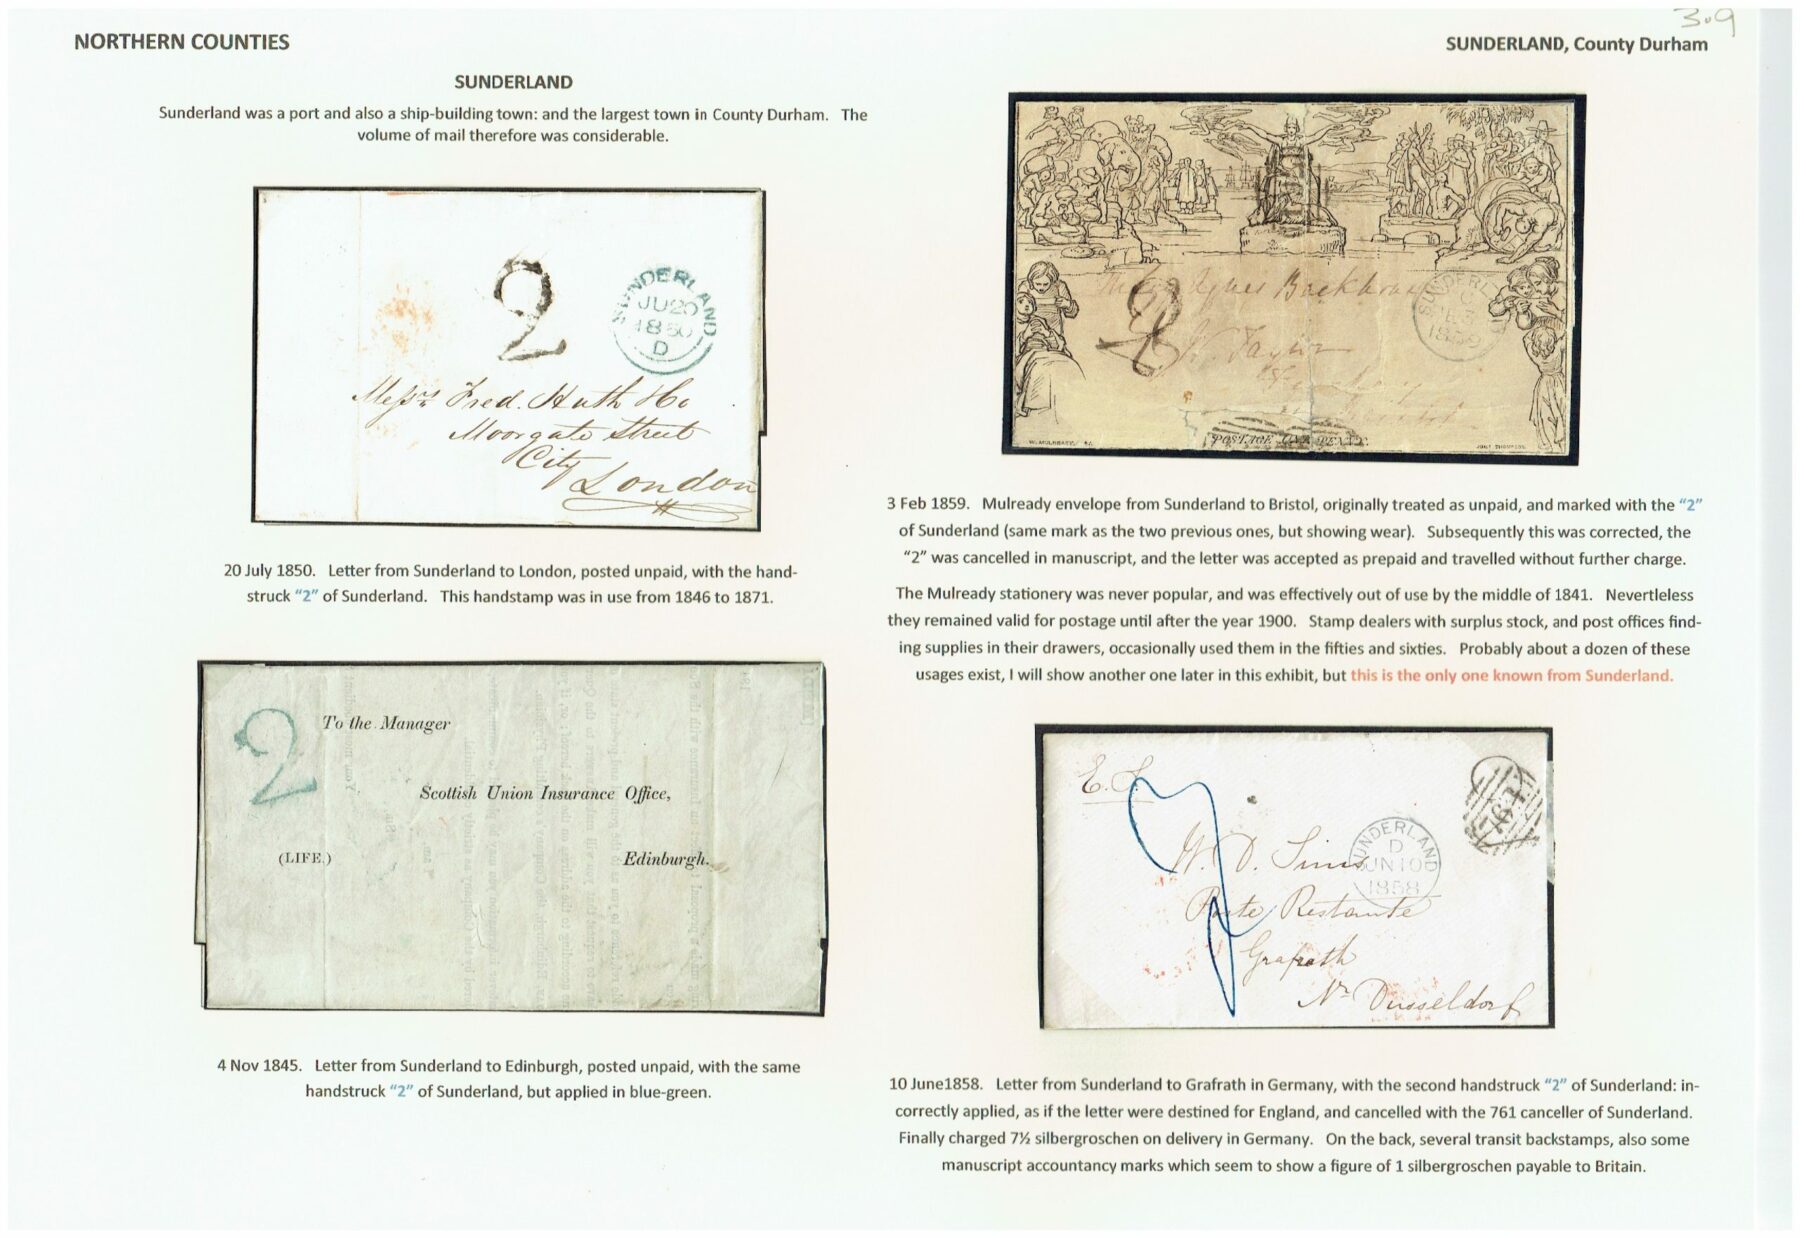 3.9
NORTHERN COUNTIES
SUNDERLAND, County Durham
SUNDERLAND
Sunderland was a port and also a ship-building town: and the largest town in County Durham. The
volume of mail therefore was considerable.
2
SUNDERLAND
JU20
1850
D
Messrs Fred. Huth & Co
Moorgate Street
City
London
20 July 1850. Letter from Sunderland to London, posted unpaid, with the hand-
struck "2" of Sunderland. This handstamp was in use from 1846 to 1871.
2
To the Manager
Scottish Union Insurance Office,
(LIFE.)
Edinburgh.
4 Nov 1845. Letter from Sunderland to Edinburgh, posted unpaid, with the same
handstruck "2" of Sunderland, but applied in blue-green.
2
Backhouse
SUNDERLAND
1859
POSTAGE ONE PENNY.
W. MULREADY.
JOHN THOMPSON.
3 Feb 1859. Mulready envelope from Sunderland to Bristol, originally treated as unpaid, and marked with the "2"
of Sunderland (same mark as the two previous ones, but showing wear). Subsequently this was corrected, the
"2" was cancelled in manuscript, and the letter was accepted as prepaid and travelled without further charge.
The Mulready stationery was never popular, and was effectively out of use by the middle of 1841. Nevertleless
they remained valid for postage until after the year 1900. Stamp dealers with surplus stock, and post offices find-
ing supplies in their drawers, occasionally used them in the fifties and sixties. Probably about a dozen of these
usages exist, I will show another one later in this exhibit, but this is the only one known from Sunderland.
761
SUNDERLAND
D
JN10
1858
W. D. Sims
Poste Restante
Grafrath
Nr Dusseldorf
10 June1858. Letter from Sunderland to Grafrath in Germany, with the second handstruck "2" of Sunderland: in-
correctly applied, as if the letter were destined for England, and cancelled with the 761 canceller of Sunderland.
Finally charged 7½ silbergroschen on delivery in Germany. On the back, several transit backstamps, also some
manuscript accountancy marks which seem to show a figure of 1 silbergroschen payable to Britain.